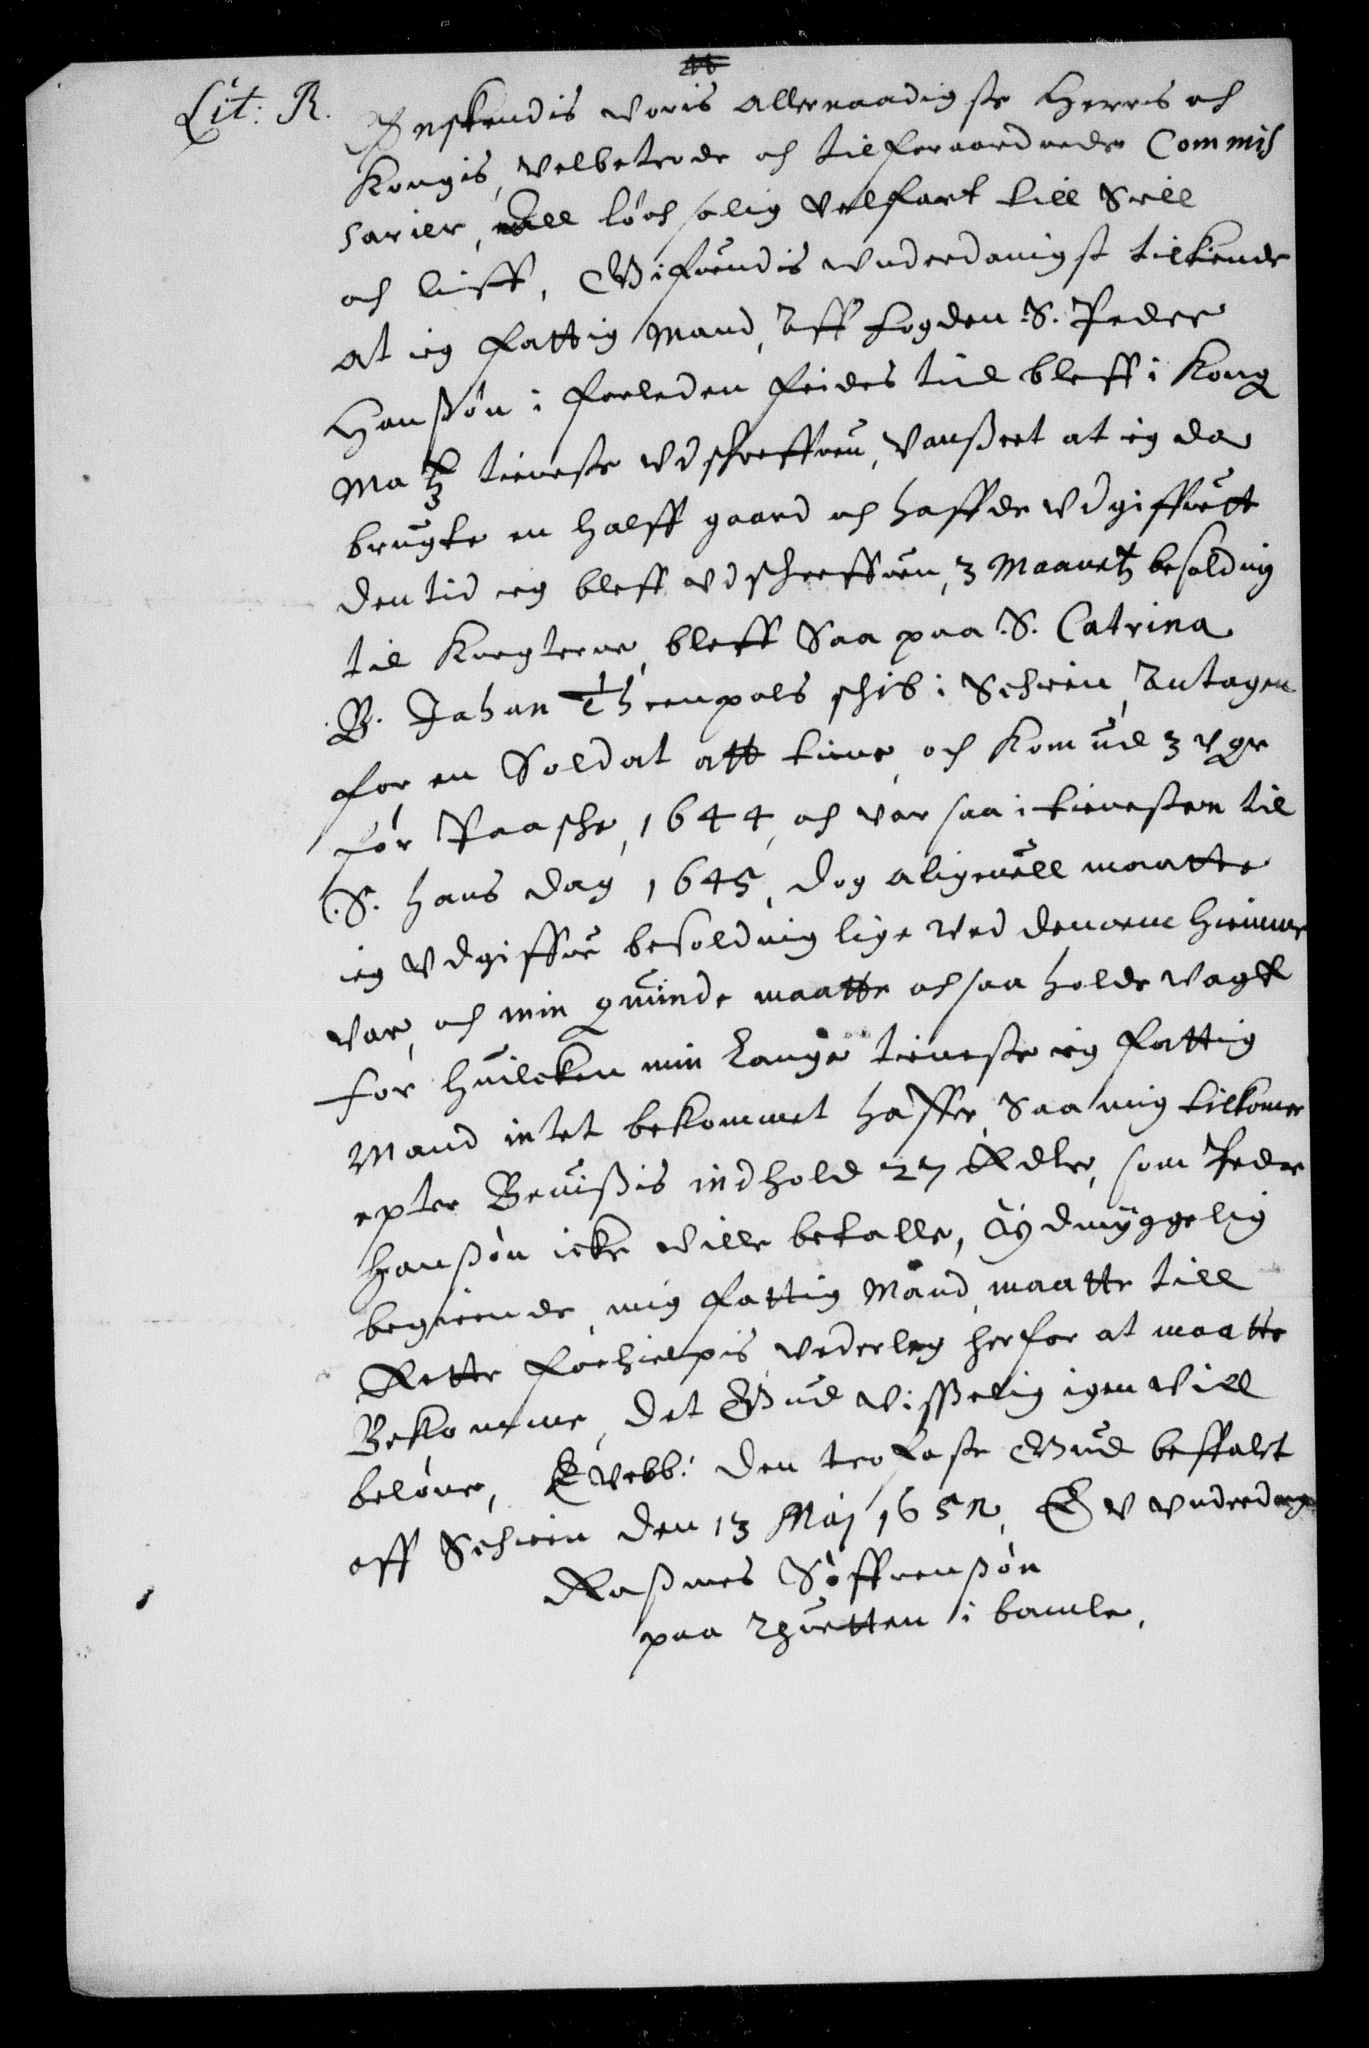 Lit: R.
Ønskendis voris allernaadigste Herris och
Kongis, velbetrode och tilforaardnede Commis
sarier, all löchsalig velfart till Siell
och liff, Gifuendis vnderdanigst tilkiende
at ieg fattig Mand, aff fogden S. Peder
Hanßøn i forleden feides tiid bleff i Kong
Maÿtz tieneste vdschreffuen, Vanßeet at ieg da
brugte en halff gaard och haffde vdgiffuett
den tid ieg bleff vdschreffuen, 3 Maanetz besolding
til Knegterne, bleff saa paa S. Catrina
B. Johan schib i Schien, antagen
for en Soldat att tiene, och kom ud 3 vger
før Paasche, 1644, och var saa i tienesten til
S. Hans dag 1645, dog aligeuell maatte
ieg vdgiffue besolding lige ved dennem hiemme
var, och min quinde maatte och saa holde vagt
for huilcken min lange tieneste ieg fattig
Mand intet bekommet haffer, Saa mig tilkomer
epter Beuißis indhold 27 Rdlr, som Peder
Hanßøn icke ville betalle, Ödmyggelig
begierende mig fattig Mand, maatte till
Rette forhielpis vederleg herfor at maatte
Bekomme, det Gud visselig igen vill
beløne, E vebb: den trofaste Gud beffalt
aff Schien den 13 Maj 1652, E v vnderdanig
Raßmus Söffrenßøn
paa i bamle.